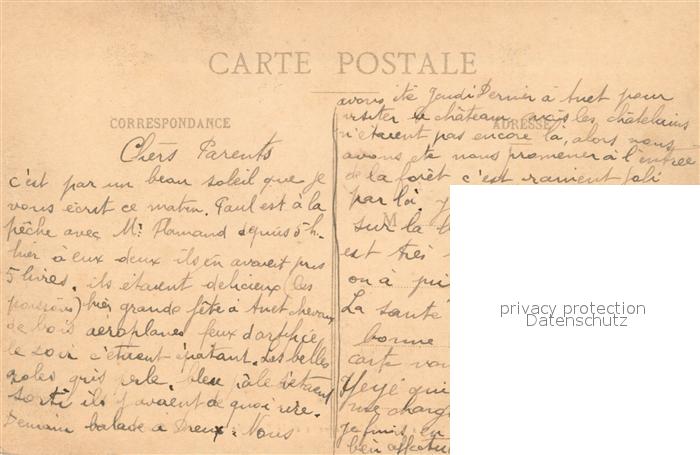 CARTE POSTALE
CORRESPONDANCE
ADRESSE
Chers Parents
c'est par un beau soleil que je
vous écrit ce matin. Paul est à la
pêche avec Mr Flamand depuis 5 h.
hier à eux deux ils en avaient pris
5 livres. ils étaient delicieux (les
poissons) hier grande fête à Anet chevaux
de bois aeroplanes feux d'artifice
le soir c'étaient épatant. Les belles
gris perle, bleu pâle étaient
sorti ils y avaient de quoi rire.
Demain balade à Dreux. Nous
avons été Jeudi Dernier à Anet pour
visiter le château, mais les châtelains
n'étaient pas encore là, alors nous
avons été nous promener à l'entrée
de la forêt c'est vraiment joli
par là.
M
sur la
est très
on à
La santé
bonne
carte
qui
une
je finis en
privacy protection
Datenschutz